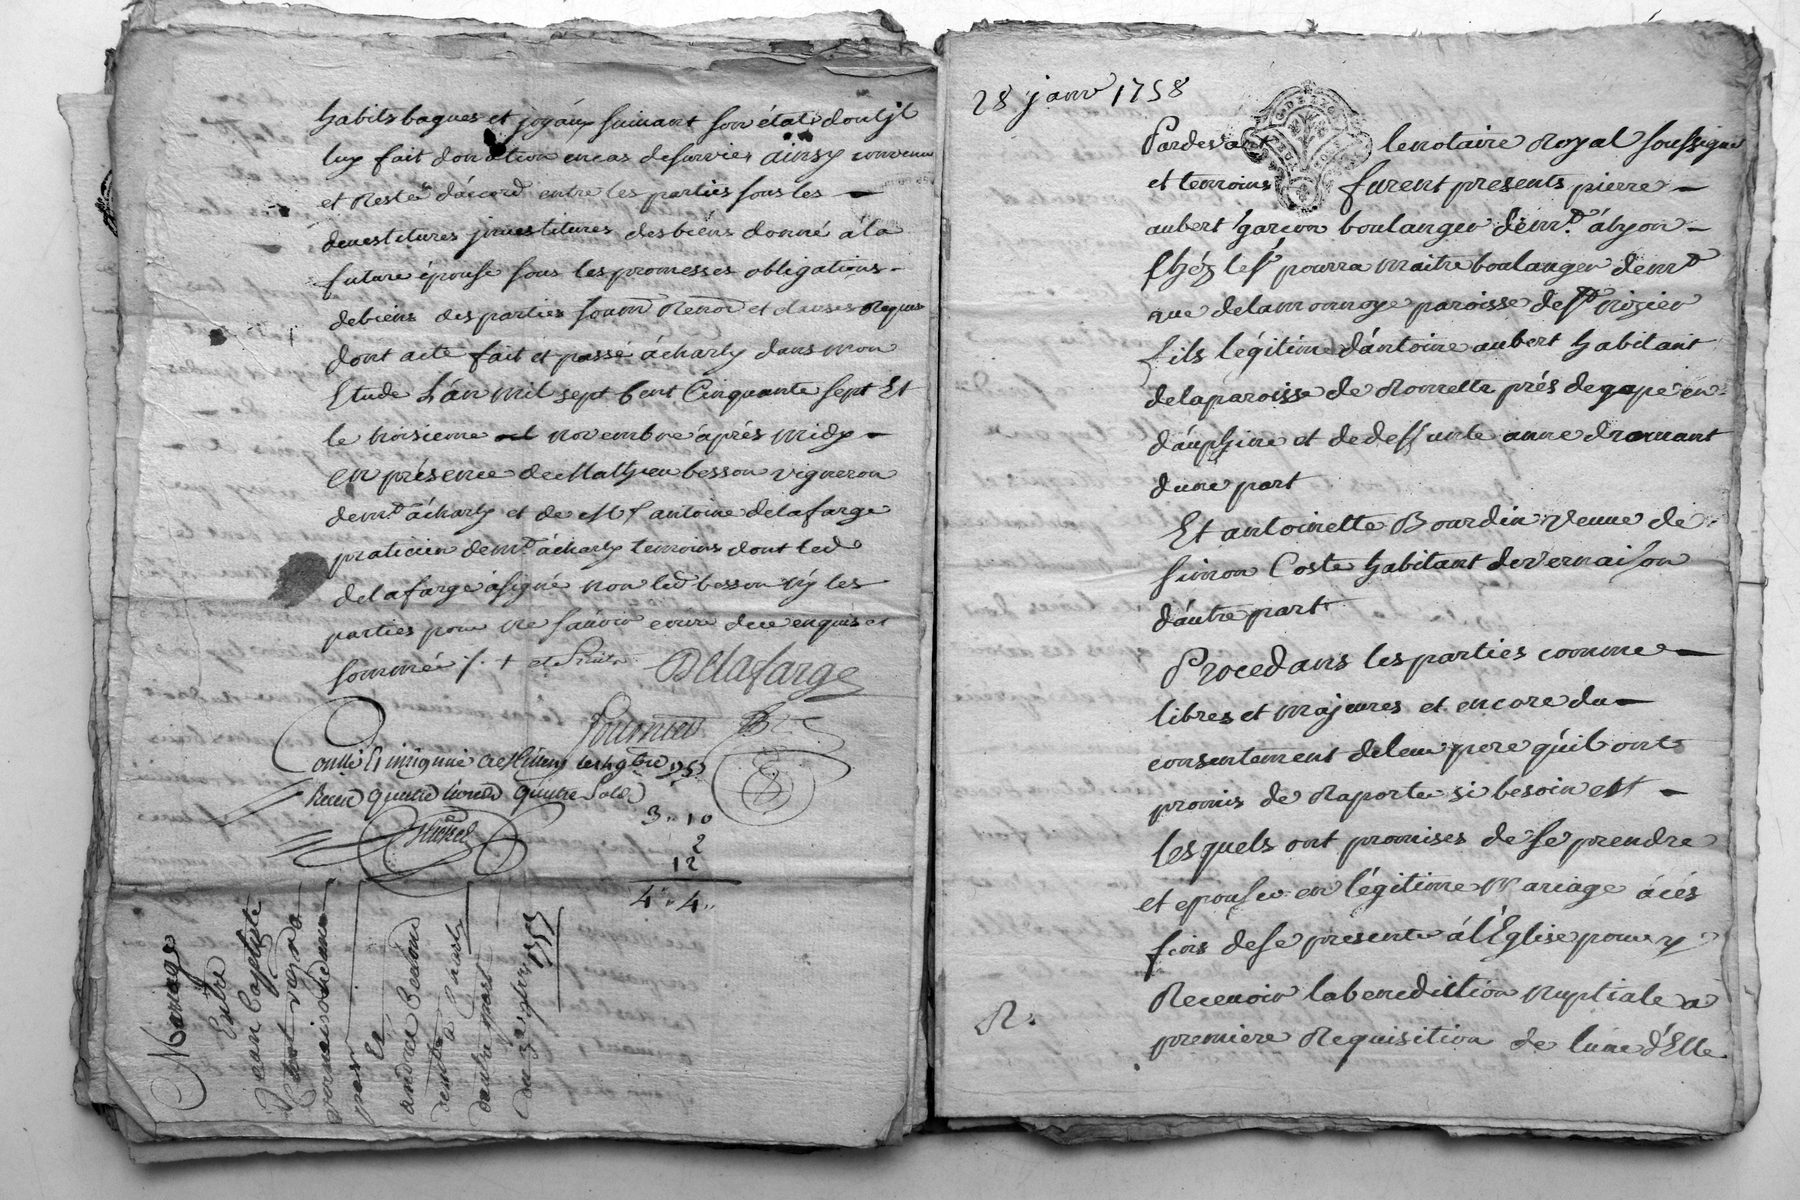 habits bagues et joyaux suivant son état dont jl
luy fait donation en cas de survie ainsy convenu
et resté d'acord entre les parties sous les
devestitures jnvestitures des biens donné à la
future épouse sous les promesses obligations
de biens des parties soum renon et clauses requis
dont acte fait et passé à charly dans mon
Etude L'an mil sept Cent Cinquante sept Et
le troisieme novembre après midy
en présence de Mathieu besson vigneron
demt à charly et de antoine delafarge
praticien demt à charly temoins dont led
delafarge a signé non led besson ny les
parties pour ne sçavoir ecrire de ce enquis et
sommé
Delafarge
Fournier
Recu quatre livres quatre sols
3 " 10
2
12
4 " 4 "
Mariage
Entre
Jean baptiste
par
Et
andrée
demte à Charly
dautre part
du 3e 9bre
1757
28 janv 1758
Pardevant le notaire Royal soussigné
et temoins furent presents pierre
aubert garçon boulanger demt à lyon
chéz le sr pourra maitre boulanger demt
rue de la monnoye paroisse de st nizier
fils légitime d'antoine aubert habitant
de la paroisse de Romette prés de gape en
dauphine et de deffunte anne
dune part
Et antoinette Bourdin veuve de
simon Coste habitant de vernaison
d'autre part
Procedans les parties comme
libres et majeures et encore du
consentement de leur pere qu'il ont
promis de raporter si besoin est
les quels ont promises de se prendre
et epouser en légitime Mariage à cés
fins de se présenter à l'Eglise pour y
Recevoir la benediction nuptiale a
premiere Requisition de l'une d'Elle
R.